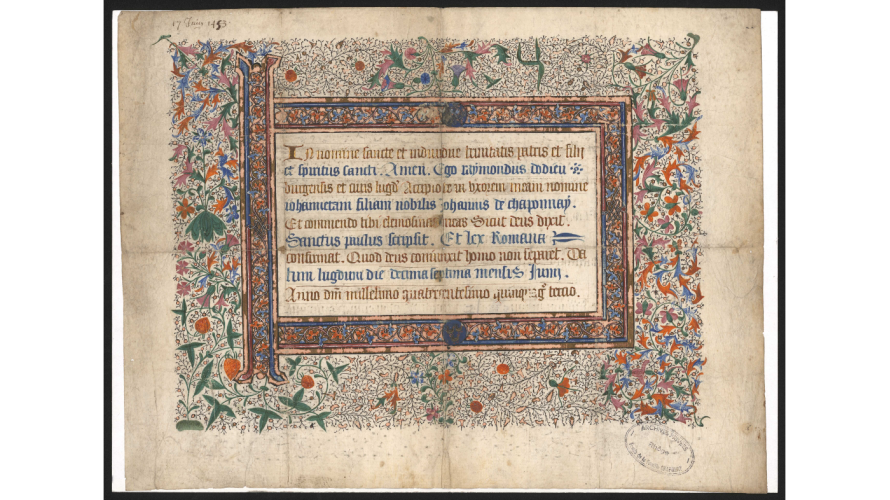 17 Juin 1453
In nomine sancte et indiuidue trinitatis patris et filij
et spiritus sancti. Amen. Ego Raymondus dodieu
burgensis et ciuis lugd Accipio te in vxorem meam nomine
iohannetam filiam nobilis iohannis de chaponay.
Et commendo tibi elemosinas meas Sicut deus dixit.
Sanctus paulus scripsit. Et lex Romana
confirmat. Quod deus coniunxit homo non separet. Da
tum lugduni die decima septima mensis Junij.
Anno dni millesimo quatercentesimo tercio.